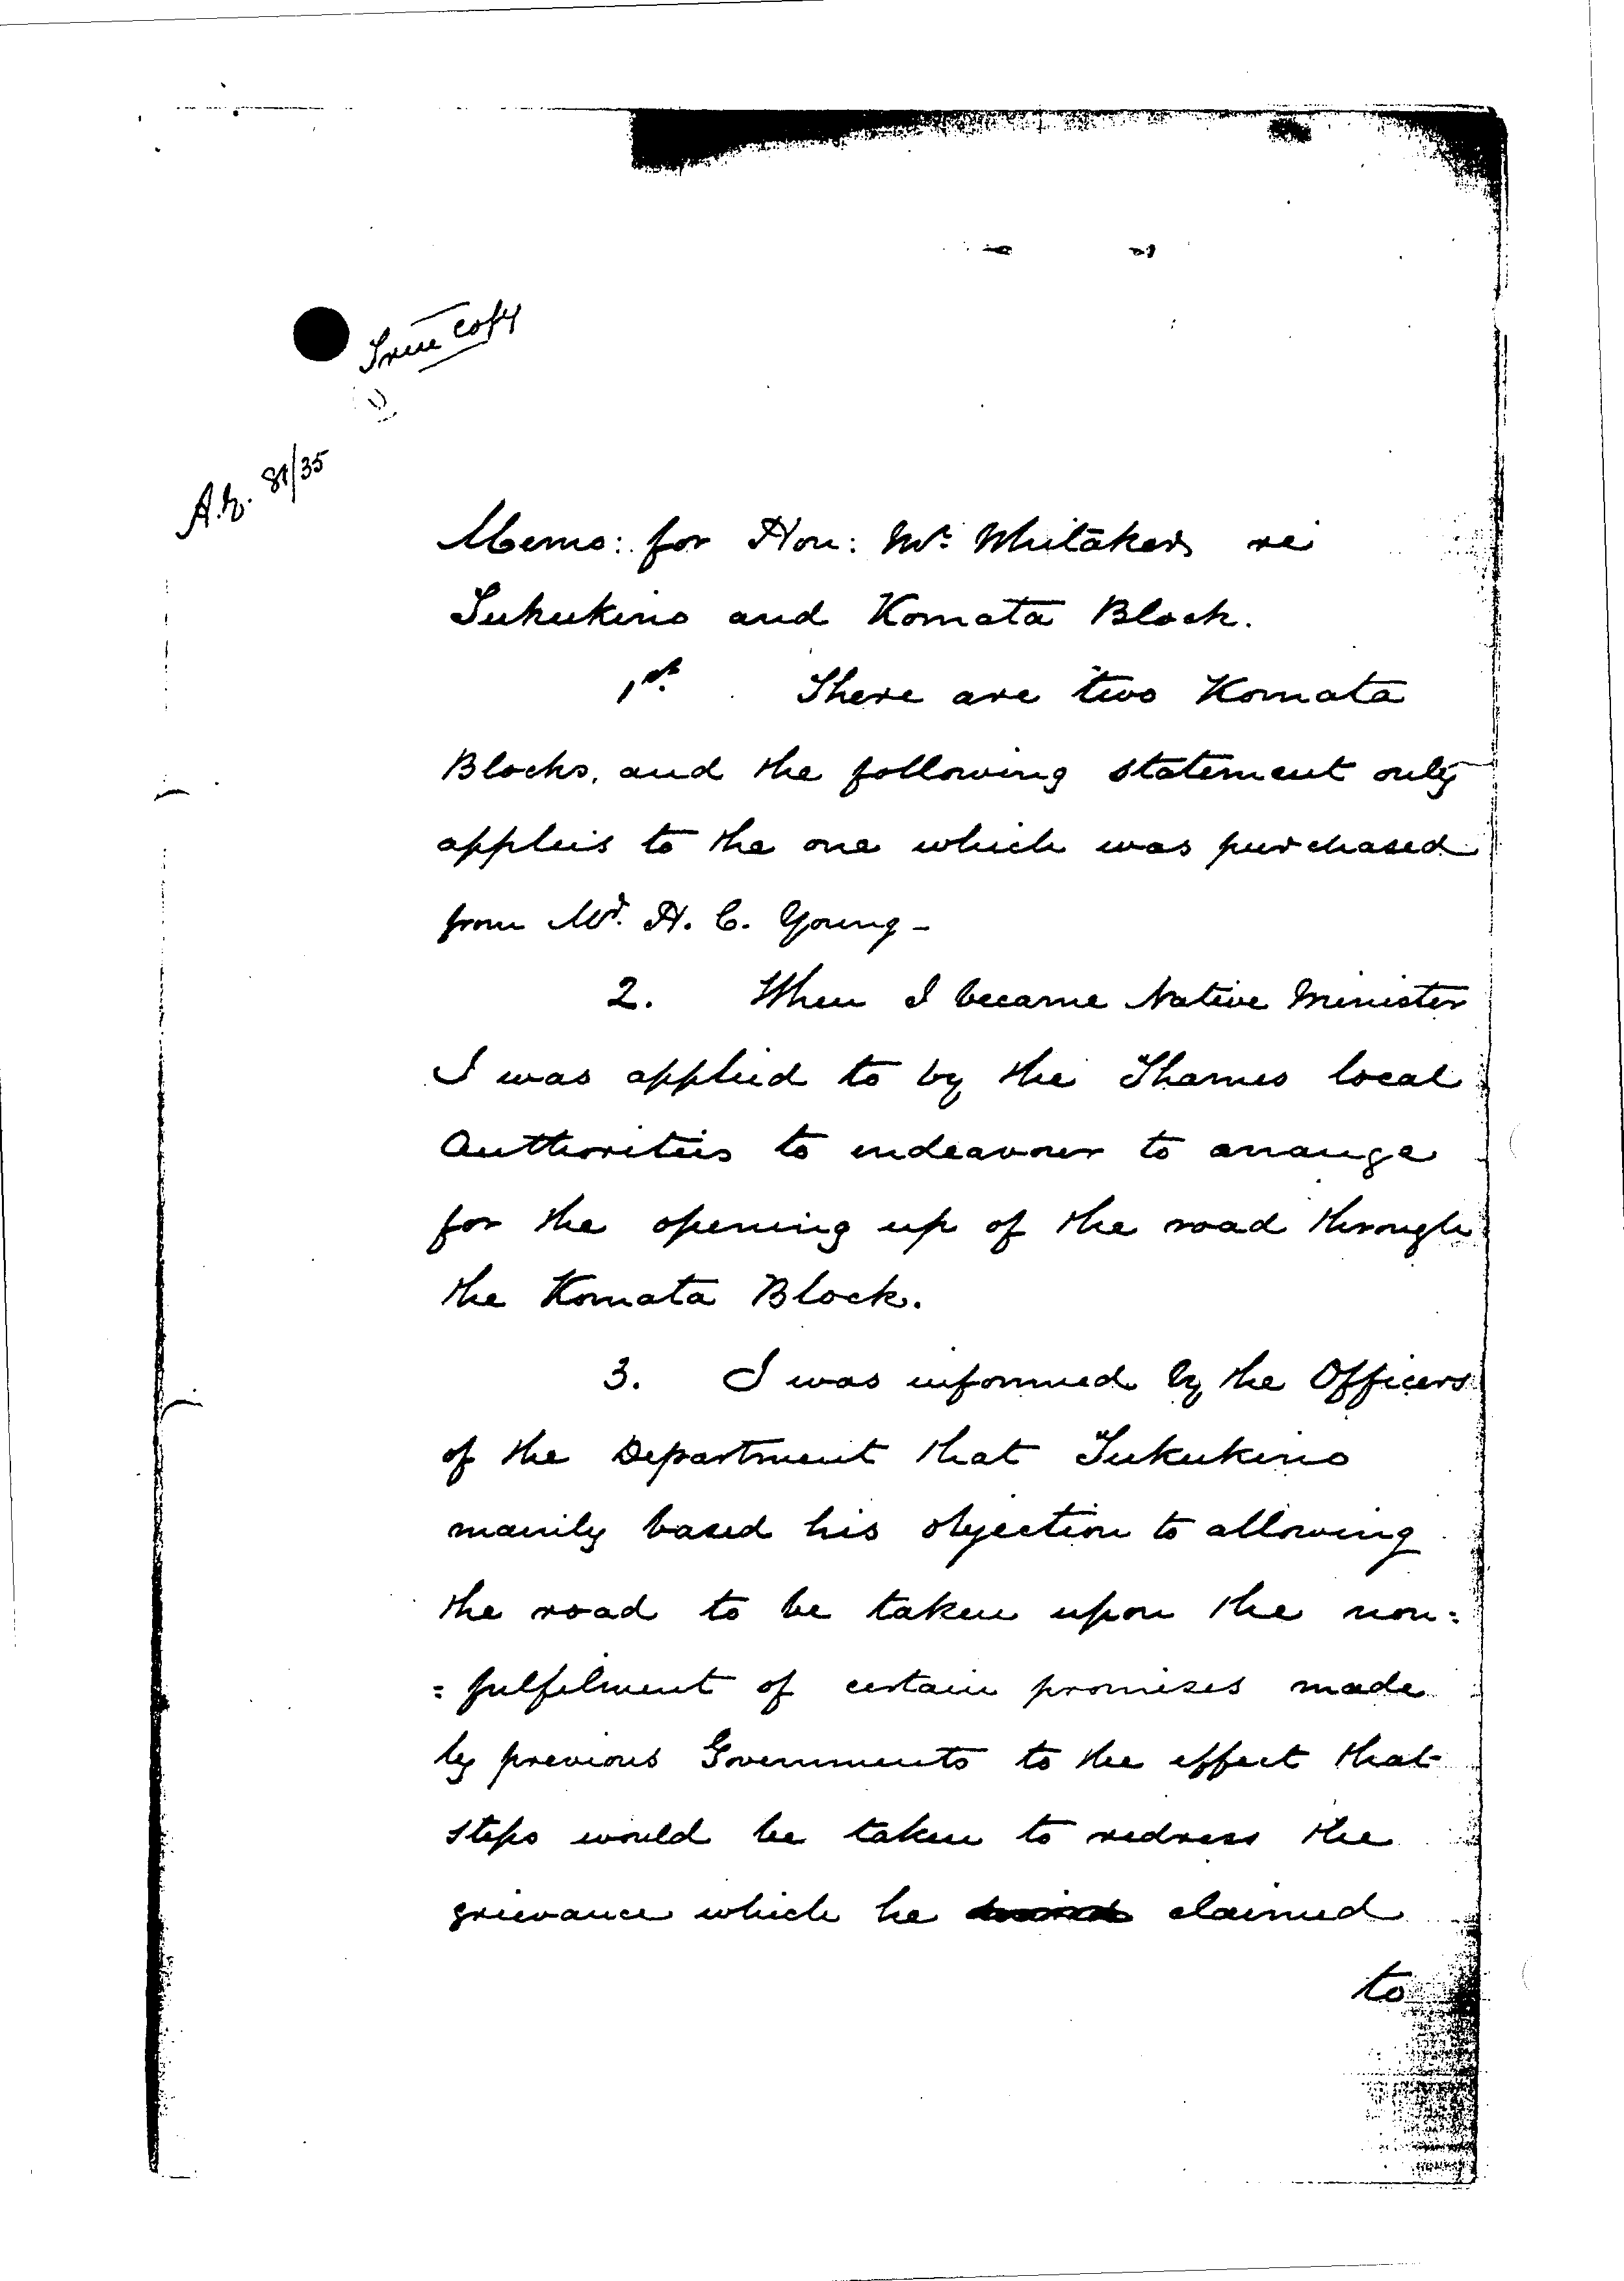 True copy
81/35
Memo: for Hon: Mr. Whitaker re
Tukukino and Komata Block.
1st. There are two Komata
Blocks, and the following statement only
applies to the one which was purchased
from Mr. H. C. Young -
2. When I became Native Minister
I was applied to by the Thames local
Authorities to endeavour to arrange
for the opening up of the road through
the Komata Block.
3. I was informed by the Officers
of the Department that Tukukino
mainly based his objection to allowing
the road to be taken upon the non:
: fulfilment of certain promises made
by previous Governments to the effect that
steps would be taken to redress the
grievance which he claimed
to